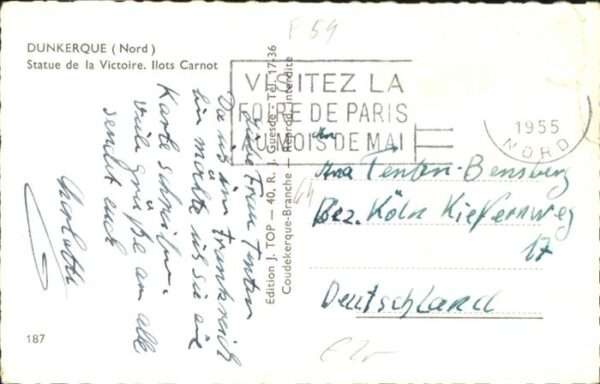 DUNKERQUE (Nord)
Statue de la Victoire. Ilots Carnot
F 59
VISITEZ LA
FOIRE DE PARIS
AU MOIS DE MAI
1955
NORD
Liebe Frau Tenten
Da ich in Frankreich
bin möchte ich Sie eine
Karte schreiben.
Viele Grüße an alle
sendet euch
Edition J. TOP — 40, R. J. Guesde - Tél. 17-36
Coudekerque-Branche — Reprod. Interdite
An
Tenten-Bensberg
Bez. Köln Kiefernweg
17
Deutschland
187